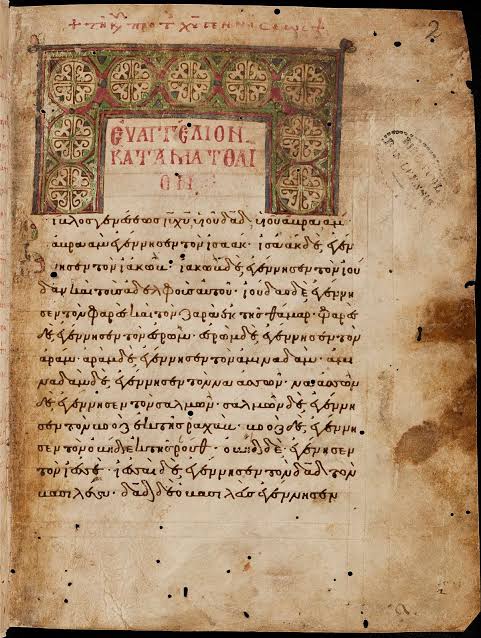 2
ΕΥΑΓΓΕΛΙΟΝ
ΚΑΤΑ ΜΑΤΘΑΙ
ΟΝ
βίβλος γενέσεως ἰῡ χῡ υἱοῦ δᾱδ υἱοῦ ἀβραάμ
ἀβραὰμ ἐγέννησεν τὸν ἰσαάκ· ἰσαὰκ δὲ ἐγέν
νησεν τὸν ἰακώβ· ἰακὼβ δὲ ἐγέννησεν τὸν ἰού
δαν καὶ τοὺς ἀδελφοὺς αὐτοῦ· ἰούδας δὲ ἐγέννη
σεν τὸν φαρὲς καὶ τὸν ζαρὰ ἐκ τῆς θάμαρ· φαρὲς
δὲ ἐγέννησεν τὸν ἐσρώμ· ἐσρὼμ δὲ ἐγέννησεν τὸν
ἀράμ· ἀρὰμ δὲ ἐγέννησεν τὸν ἀμιναδάμ· ἀμι
ναδὰμ δὲ ἐγέννησεν τὸν ναασσών· ναασσὼν
δὲ ἐγέννησεν τὸν σαλμών· σαλμὼν δὲ ἐγέννη
σεν τὸν βοὸζ ἐκ τῆς ῥαχάβ· βοὸζ δὲ ἐγέννη
σεν τὸν ὠβὴδ ἐκ τῆς ῥούθ· ὠβὴδ δὲ ἐγέννησεν
τὸν ἰεσσαί· ἰεσσαὶ δὲ ἐγέννησεν τὸν δᾱδ τὸν
βασιλέα· δᾱδ δὲ ὁ βασιλεὺς ἐγέννησεν